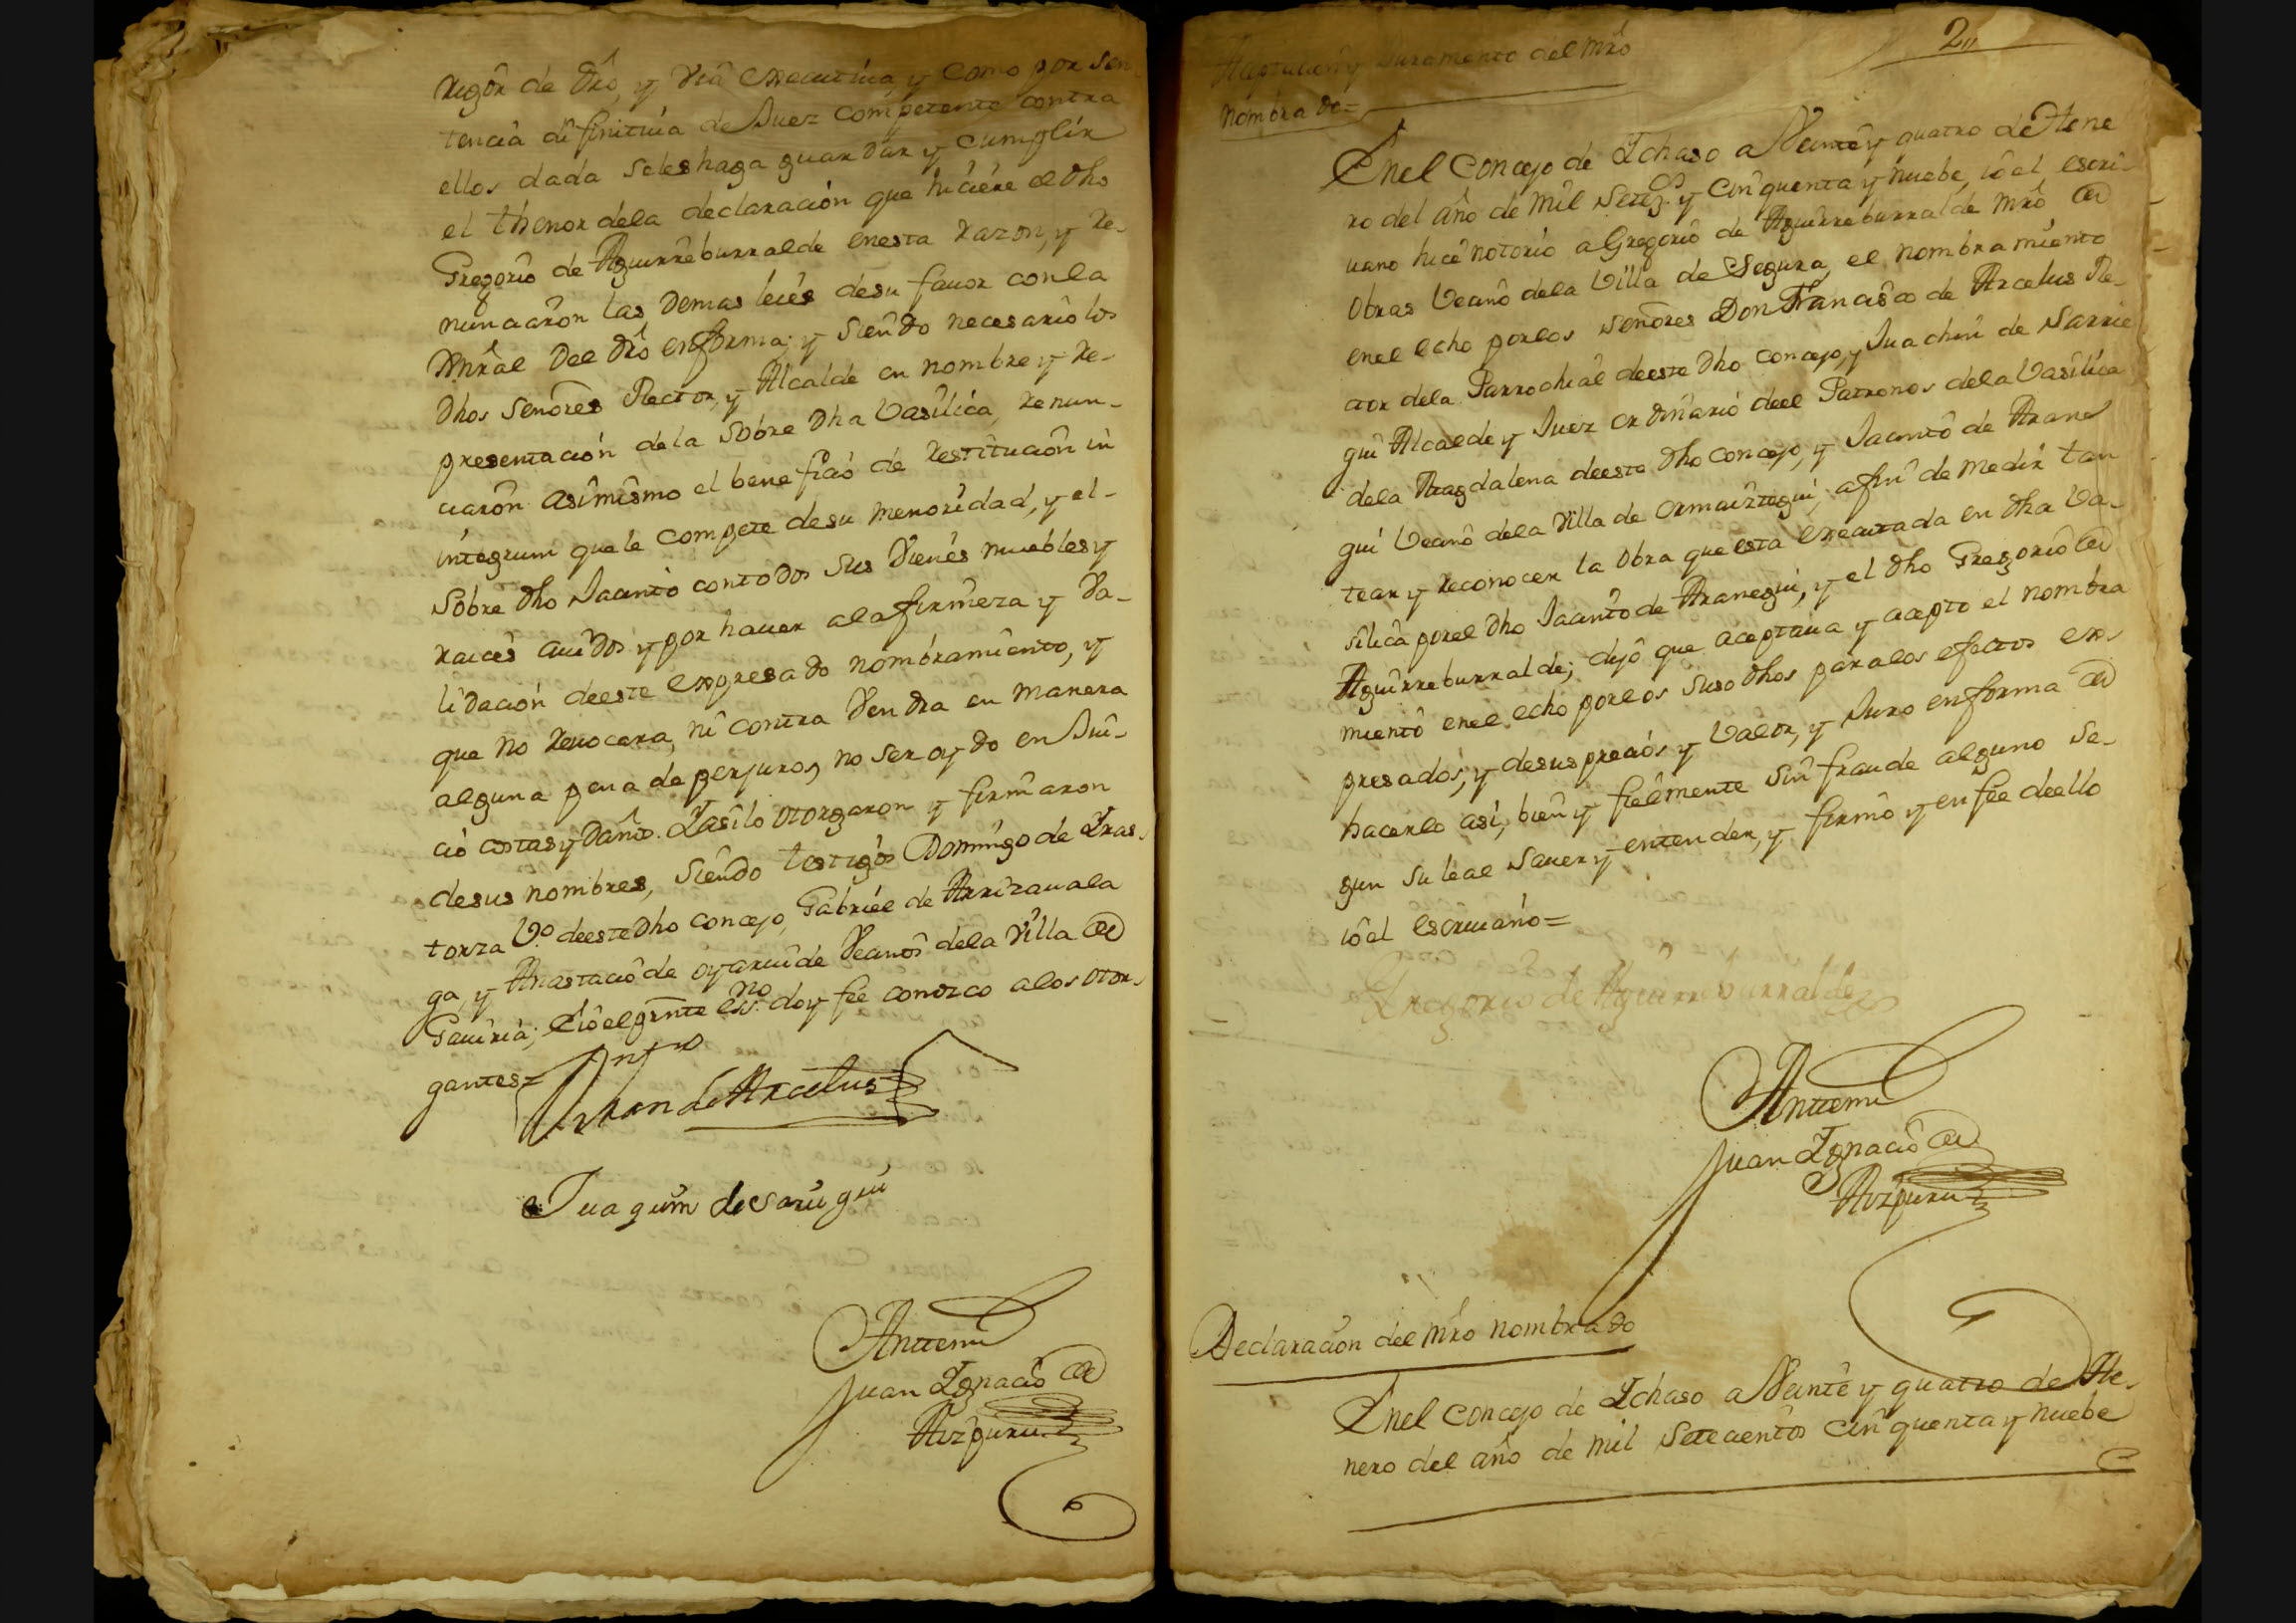 rigôr de drô, y viâ executiva y como por sen
tencia difinitiva de Juez competente contra
ellos dada seles haga guardar y cumplir
el thenor dela declaracion que hiciere el dho
Gregorio de Aguirreburralde enesta razon, y re-
nunciaron las demas leies desu favor conla
Gnrâl del drô enforma; y siendo necesario los
dhos señores Rector, y Alcalde en nombre y re-
presentacion dela sobre dha Vasilica, renun-
ciaron asimismo el beneficio de restitucion in
integrum quele compete desu menoridad, y el-
sobre dho Jacinto contodos sus vienes muebles y
raices avidos y por haver ala firmeza y va-
lidacion deeste expresado nombramiento, y
que no revocara, ni contra vendra en manera
alguna pena de perjuros, no ser oydo en Jui-
cio costas y daño. Yasilo otorgaron y firmaron
desus nombres, siendo testigos Domingo de Yras-
torza Vº deeste dho concejo, Gabriel de Arrizavala
ga, y Anastacio de oyarvide Vecinos dela Villa de
Gaviria; eio el prnte essno doy fee conozco alos otor-
gantes=
Fran de Arcelus
Juaquim de Sarugui
Antemi
Juan Ygnacio de
Aizpuru
2
Aceptacion y Juramento del mrô
nombrado=
Enel Concejo de Ychaso a Veinte y quatro de Hene
ro del año de mil setezs y cinquenta y nuebe, io el escri-
vano hice notorio a Gregorio de Aguirreburralde mrô de
obras Vecino dela Villa de Segura, el nombramiento
enel echo porlos señores Don Francisco de Arcelus Re-
ctor dela Parrochial deeste dho concejo, y Juachin de Sarrie
gui Alcalde y Juez ordinario deel Patronos dela Vasilica
dela Magdalena deeste dho concejo, y Jacinto de Arane
gui Vecino dela Villa de Ormaiztegui, afin de medir tan
tear y reconocer la obra que esta executada en dha Va-
silica porel dho Jacinto de Aranegui, y el dho Gregorio de
Aguirreburralde; dijo que aceptava y acepto el nombra
miento enel echo porlos suso dhos para los efectos ex-
presados, y desus precios y Valor, y Juro enforma de
hacerlo asi, bien y fielmente sin fraude alguno se-
gun su leal saver y entender, y firmo y en fee deello
io el escrivano=
Gregorio de Aguirreburralde
Antemi
Juan Ygnacio de
Aizpuru
Declaracion del mrô nombrado
Enel Concejo de Ychaso a Veinte y quatro de He-
nero del año de mil setecientos cinquenta y nuebe